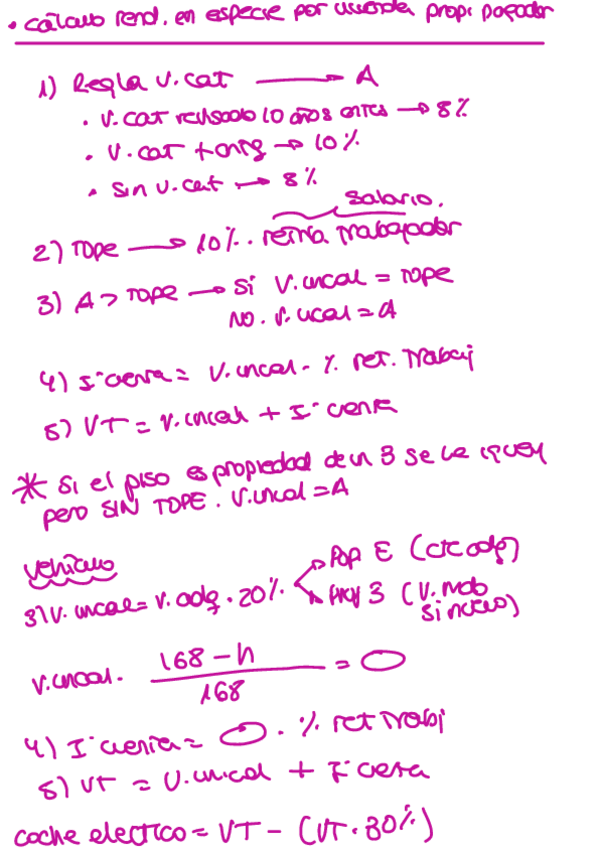 • cálculo rend. en especie por vivienda prop. pagador
1) Regla v.cat → A
• v.cat revisado 10 años antes → 8%
• v.cat + antig → 10%
• sin v.cat → 8%
salario.
2) TOPE → 10% . remta trabajador
3) A > TOPE → Si V. incal = TOPE
NO. V. ucal = A
4) I. cuenta = V. incal. % ret. Trabaj
5) VT = V. incal + I. cuenta
* Si el piso es propiedad de un 3 se le
pero SIN TOPE. V. incal = A
Vehículo
3) V. incal = v. adq. 20% → Pop E (cte adq)
→ 3 (v. mdo
si nuevo)
v. incal. 168 - h / 168 = O
4) I. cuenta = O . % ret trabj
5) VT = V. in.cal + I. cuenta
coche electrico = VT - (VT. 30%)